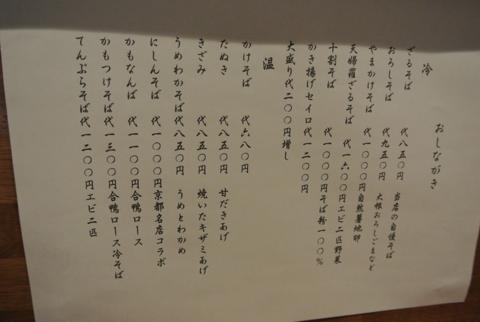 おしながき
冷
ざるそば 代八五〇円 当店の自慢そば
おろしそば 代九五〇円 大根おろしごまなど
やまかけそば 代一〇〇〇円自然薯地卵
天婦羅ざるそば 代一六〇〇円エビ二匹野菜
十割そば 代一〇〇〇円そば粉一〇〇%
かき揚げセイロ代一二〇〇円
大盛り代二〇〇円増し
温
かけそば 代六八〇円
たぬき 代八五〇円 甘だきあげ
きざみ 代八五〇円 焼いたキザミあげ
うめわかそば代八五〇円 うめとわかめ
にしんそば 代一〇〇〇円京都名店コラボ
かもなんば 代一一〇〇円合鴨ロース
かもつけそば代一三〇〇円合鴨ロース冷そば
てんぷらそば代一二〇〇円エビ二匹